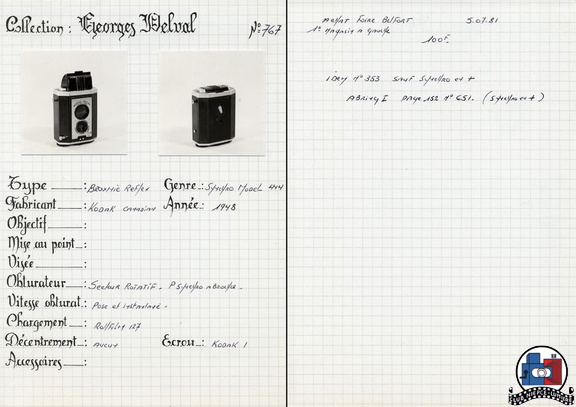 Collection : Georges Delval
N°: 767
Type : Brownie Reflex
Genre : Synchro Model
Fabricant : Kodak
Année : 1948
Objectif :
Mise au point :
Visée :
Obturateur : Secteur Rotatif.
Vitesse obturat : Pose et instantané.
Chargement : Rollfilm 127
Décentrement : Aucun
Ecrou : Kodak 1
Accessoires :
Achat Foire Belfort 5.07.81
100F.
N° 353 sauf Synchro et +
Abring I page 152 N° 651. (Synchro et +)